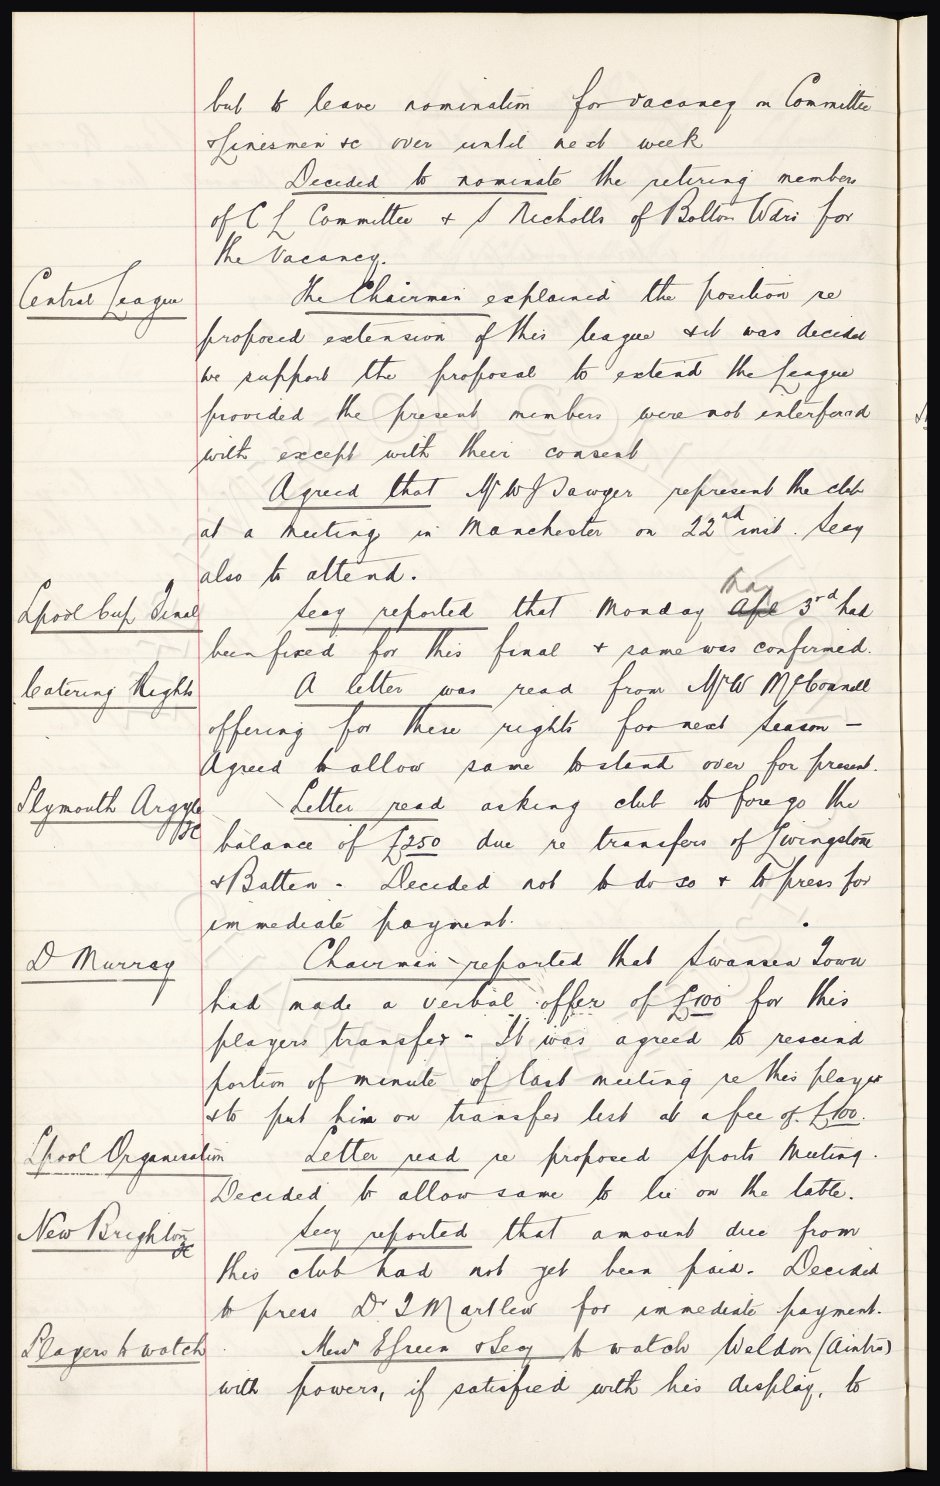 but to leave nomination for vacancy on Committee
& Linesmen &c over until next week
Decided to nominate the retiring members
of C L Committee & S Nicholls of Bolton Wdrs for
the vacancy.
Central League
The Chairman explained the position re
proposed extension of this league & it was decided
we support the proposal to extend the League
provided the present members were not interfered
with except with their consent
Agreed that Mr W J Sawyer represent the club
at a meeting in Manchester on 22nd inst. Secy
also to attend.
Lpool Cup Final
Secy reported that Monday Apl May 3rd had
been fixed for this final & same was confirmed.
Catering Rights
A letter was read from Mr W McConnell
offering for these rights for next season —
Agreed to allow same to stand over for present.
Plymouth Argyle FC
Letter read asking club to forego the
balance of £250 due re transfers of Livingstone
& Batten - Decided not to do so & to press for
immediate payment.
D Murray
Chairman reported that Swansea Town
had made a verbal offer of £100 for this
players transfer - It was agreed to rescind
portion of minute of last meeting re this player
& to put him on transfer list at a fee of £100.
Lpool Organisation
Letter read re proposed Sports Meeting.
Decided to allow same to lie on the table.
New Brighton FC
Secy reported that amount due from
this club had not yet been paid. Decided
to press Dr T Martlew for immediate payment.
Players to watch
Messrs E Green & Secy to watch Weldon (Airdrie)
with powers, if satisfied with his display, to